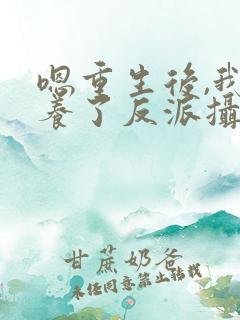 嗯重生後,我
養了反派攝
甘蔗奶爸
未經同意禁止轉載